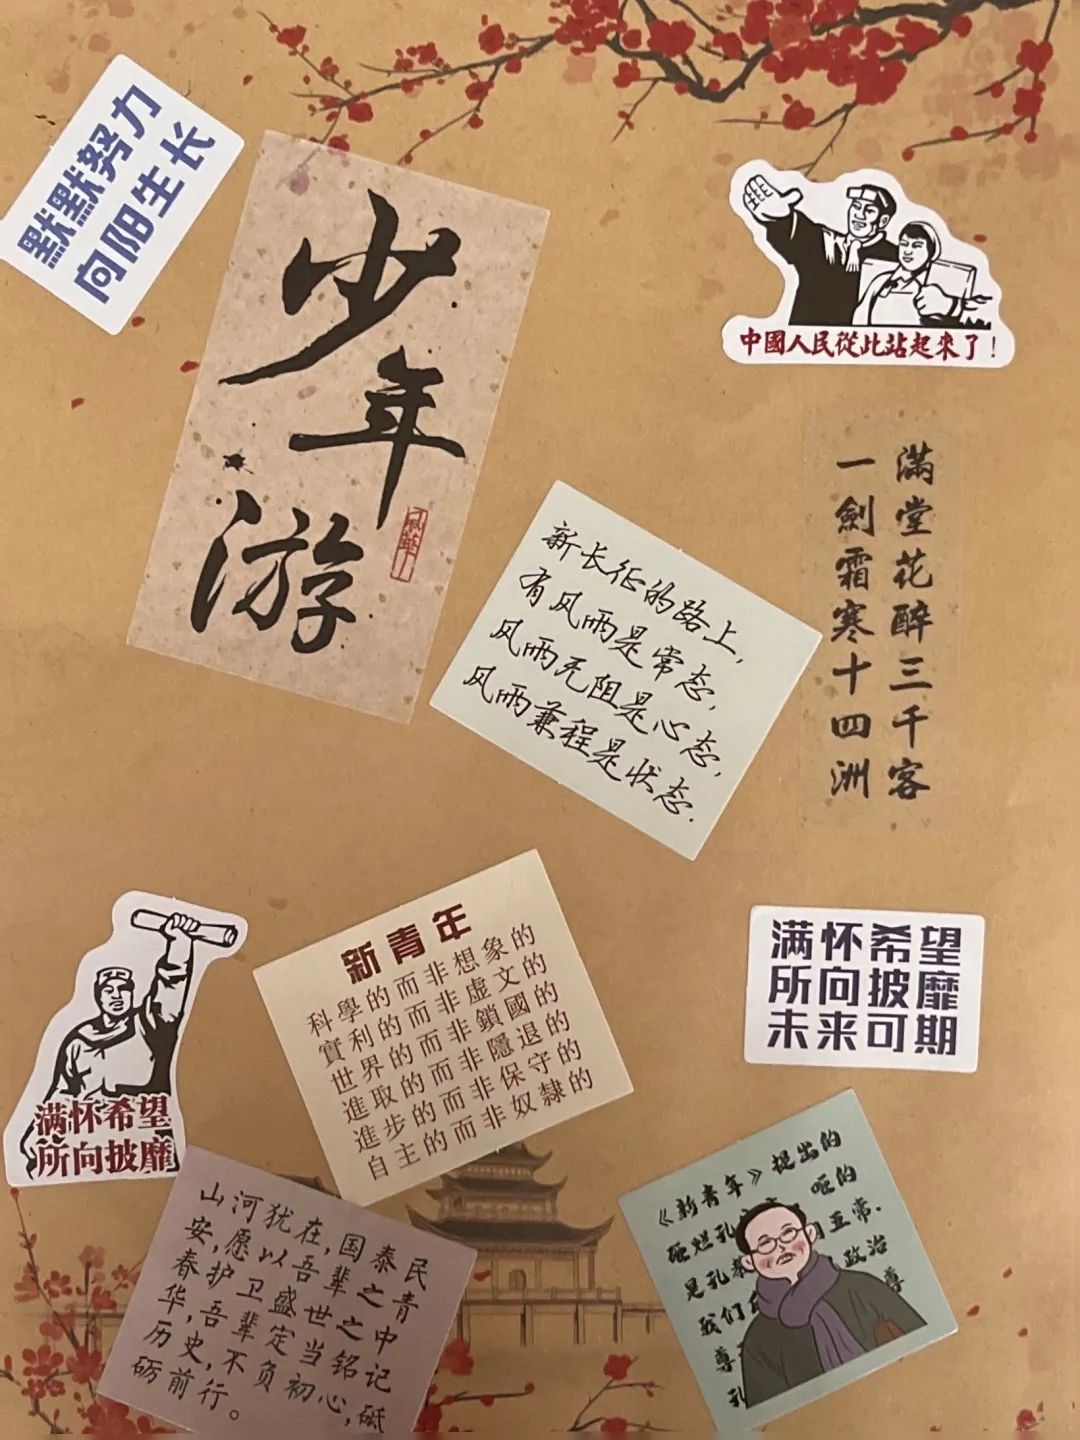 默默努力
向阳生长
少年游
中國人民從此站起來了！
滿堂花醉三千客
一劍霜寒十四洲
新长征的路上，
有风雨是常态，
风雨无阻是心态，
风雨兼程是状态.
新青年
科學的而非想象的
實利的而非虛文的
世界的而非鎖國的
進取的而非隱退的
進步的而非保守的
自主的而非奴隸的
满怀希望
所向披靡
未来可期
满怀希望
所向披靡
山河犹在，国泰民
安，愿以吾辈之青
春护卫盛世之中
华，吾辈定当铭记
历史，不负初心，砥
砺前行。
《新青年》提出的
砸烂孔 呃的
是孔教 豆常.
我们 政治
尊 尊
孔